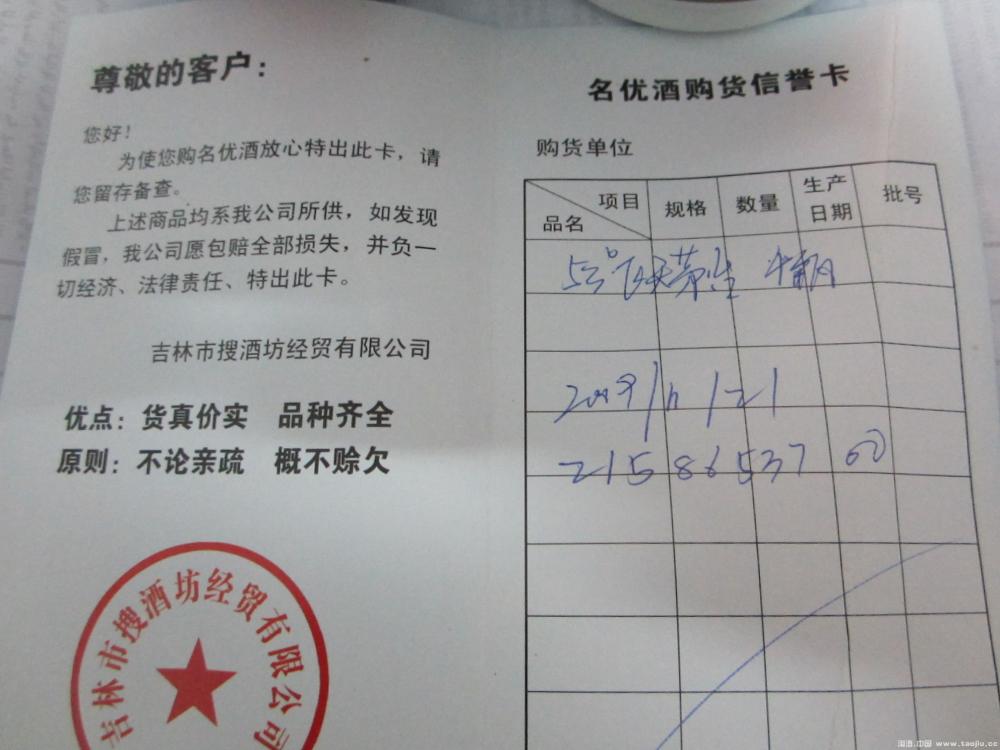 尊敬的客户：
您好！
为使您购名优酒放心特出此卡，请
您留存备查。
上述商品均系我公司所供，如发现
假冒，我公司愿包赔全部损失，并负一
切经济、法律责任、特出此卡。
吉林市搜酒坊经贸有限公司
优点：货真价实 品种齐全
原则：不论亲疏 概不赊欠
吉林市搜酒坊经贸有限公司
名优酒购货信誉卡
购货单位
项目
品名
规格
数量
生产
日期
批号
53° 飞天茅台
21586537
淘酒.中国 www.taojiu.cc